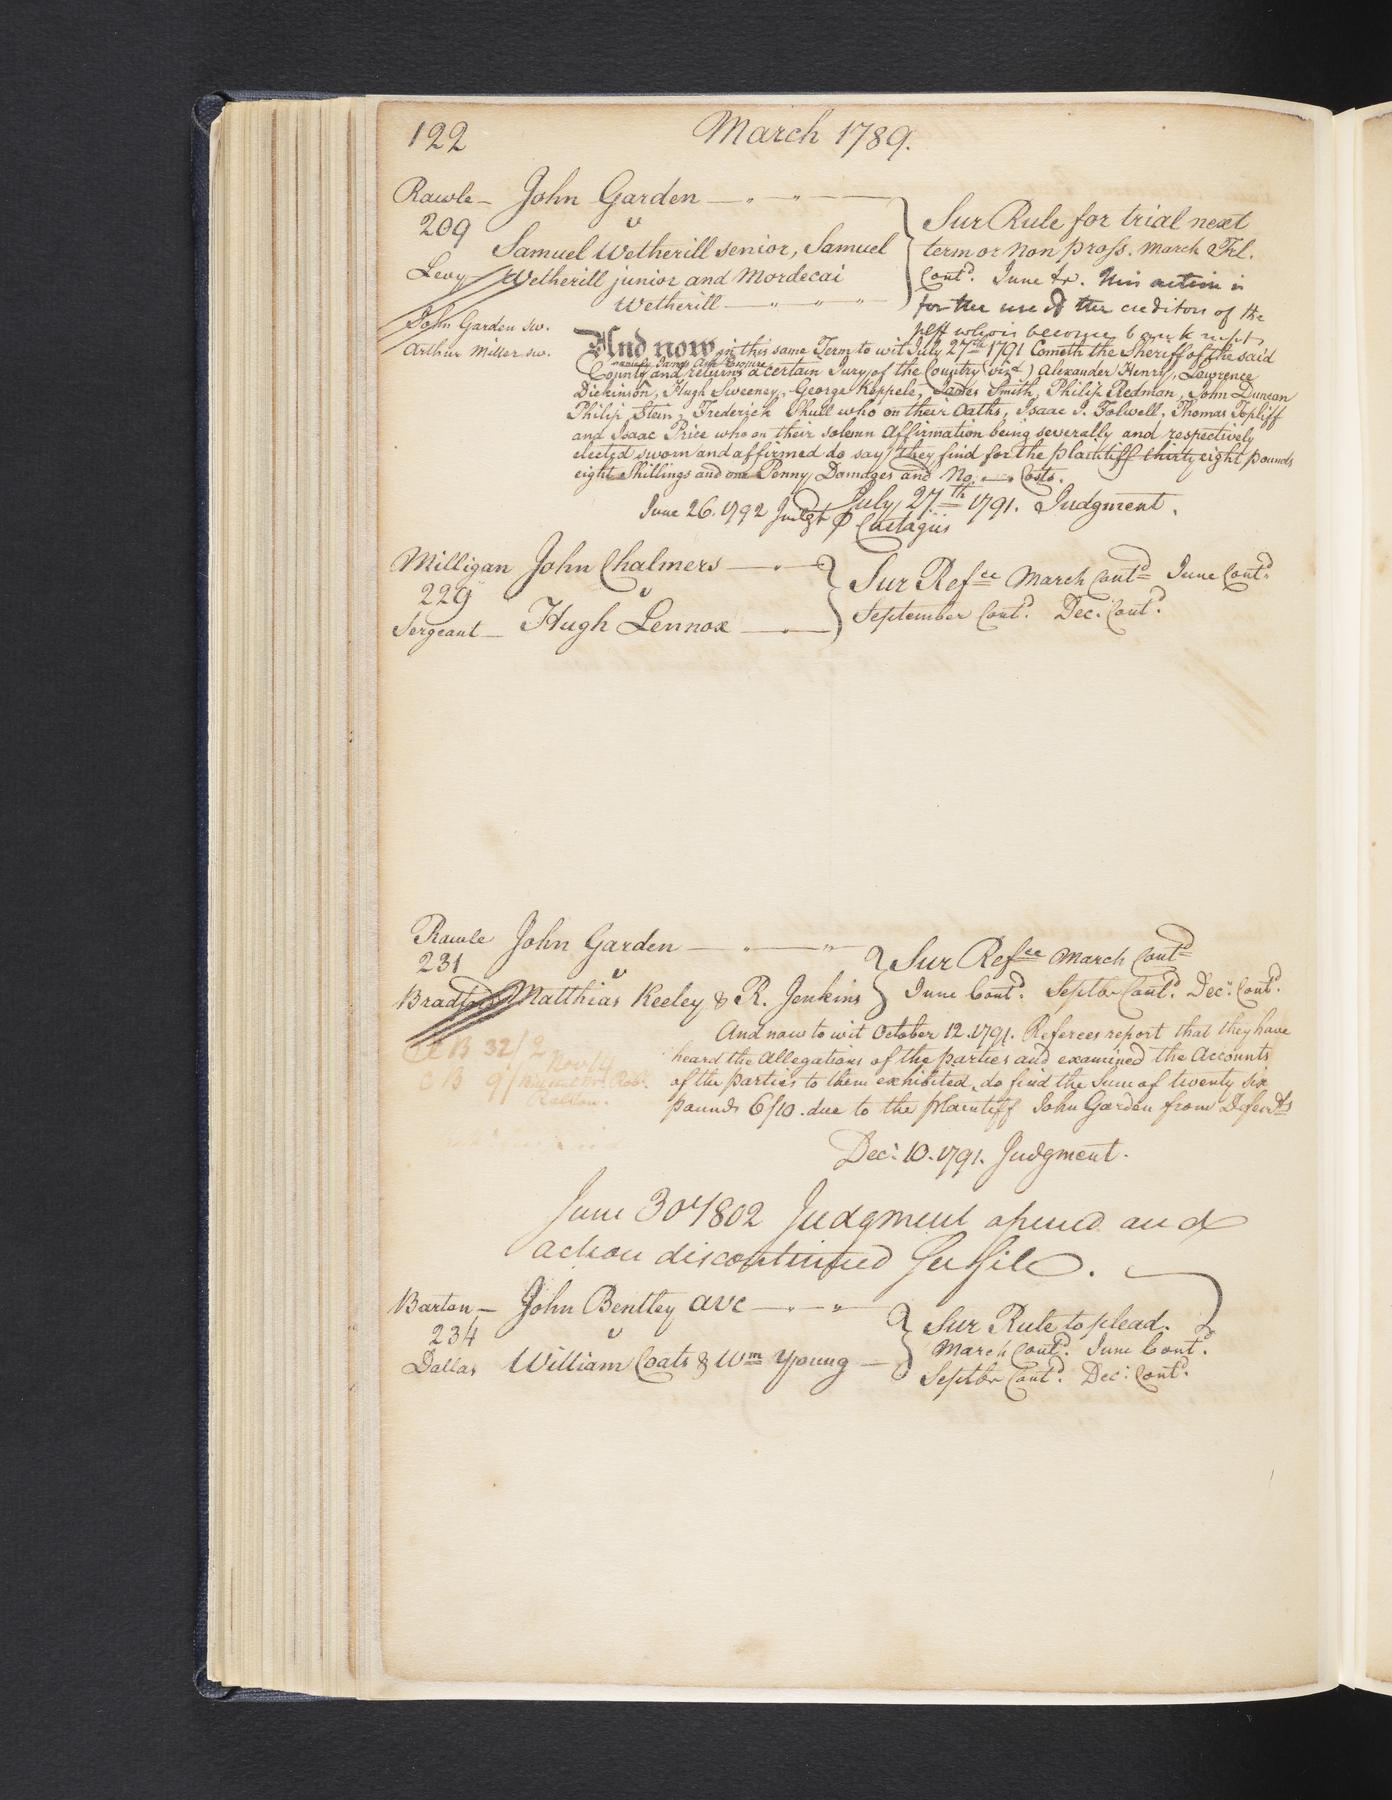 122
March 1789.
Rawle — John Garden
209 v
Samuel Wetherill senior, Samuel
Levy Wetherill junior and Mordecai
Wetherill
Sur Rule for trial next
term or Non pross. March Trl.
Cont.d June Tr. This action is
for the use of the creditors of the
plff who is become bankrupt
John Garden sw.
Arthur Miller sw.
And now in this same Term to wit July 27th 1791 Cometh the Sheriff of the said
namely James Ash Esquire
County and returns a certain Jury of the Country (vizt) Alexander Henry, Lawrence
Dickinson, Hugh Sweeney, George Keppele, James Smith, Philip Redman, John Duncan
Philip Stein, Frederick Shull who on their Oaths, Isaac I. Folwell, Thomas Topliff
and Isaac Price who on their solemn Affirmation being severally and respectively
elected sworn and affirmed do say they find for the plaintiff thirty eight pounds
eight Shillings and one Penny Damages and No. — Costs.
July 27th 1791. Judgment.
June 26. 1792 Judgt
Milligan John Chalmers
229 v
Sergeant — Hugh Lennox
Sur Refce March Contd June Contd
September Cont.d Dec.r Cont.d
Rawle John Garden
231 v
Bradford Matthias Keeley & R. Jenkins
Sur Refce March Contd
June Cont.d Septbr Cont.d Dec.r Cont.d
And now to wit October 12. 1791. Referees report that they have
heard the Allegations of the parties and examined the Accounts
of the parties to them exhibited, do find the Sum of twenty six
pounds 6/10. due to the plaintiff John Garden from Defendts
32/2
Nov 14
CB 9/
Dec.r 10. 1791. Judgment.
June 30th 1802 Judgment opened and
action discontinued
Barton — John Bentley ads
234 v
Dallas William Coats & Wm Young
Sur Rule to plead.
March Cont.d June Cont.d
Septbr Cont.d Dec.r Cont.d